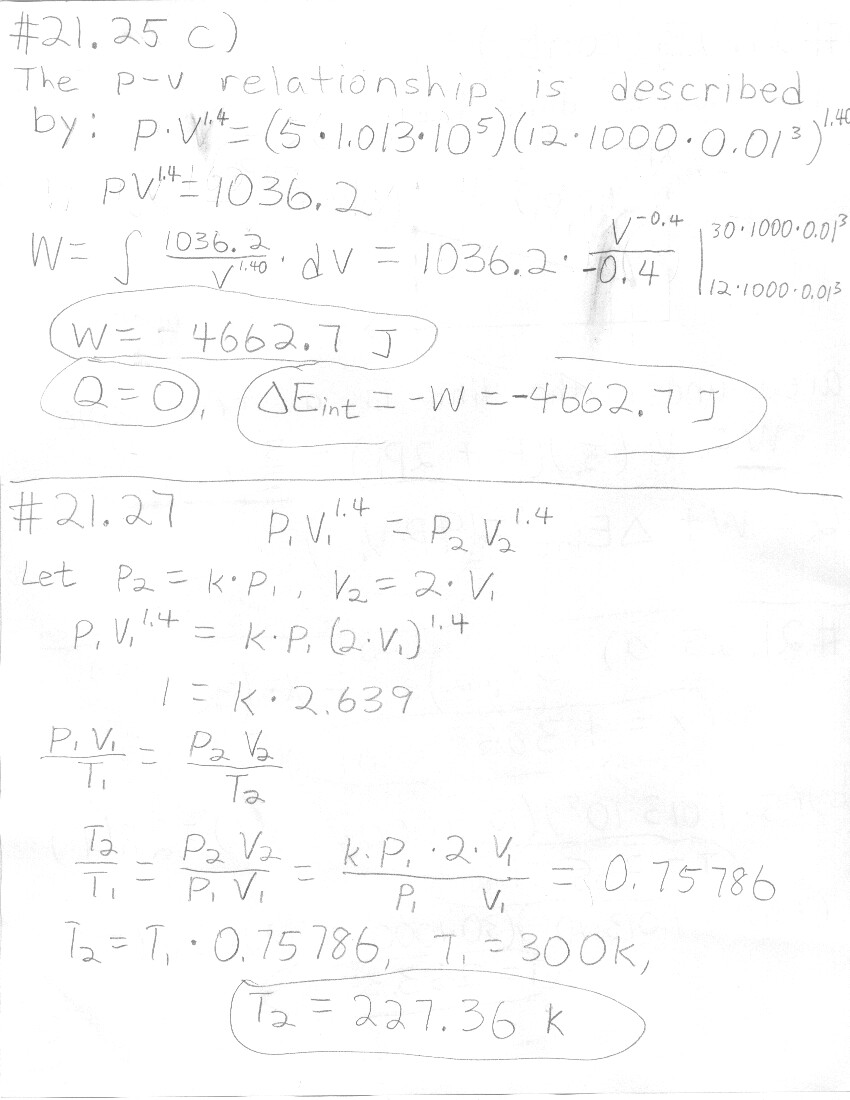 #21.25 c)
The p-v relationship is described
by: P·V^1.4 = (5·1.013·10^5)(12·1000·0.01^3)^1.40
PV^1.4 = 1036.2
W = ∫ 1036.2/V^1.40 · dV = 1036.2 · V^-0.4/-0.4 |_{12·1000·0.01^3}^{30·1000·0.01^3}
W = 4662.7 J
Q = 0, ΔE_int = -W = -4662.7 J
#21.27 P₁V₁^1.4 = P₂V₂^1.4
Let P₂ = k·P₁, V₂ = 2·V₁
P₁V₁^1.4 = k·P₁(2·V₁)^1.4
1 = k·2.639
P₁V₁/T₁ = P₂V₂/T₂
T₂/T₁ = P₂V₂/P₁V₁ = k·P₁·2·V₁/P₁V₁ = 0.75786
T₂ = T₁·0.75786, T₁ = 300k,
T₂ = 227.36 k